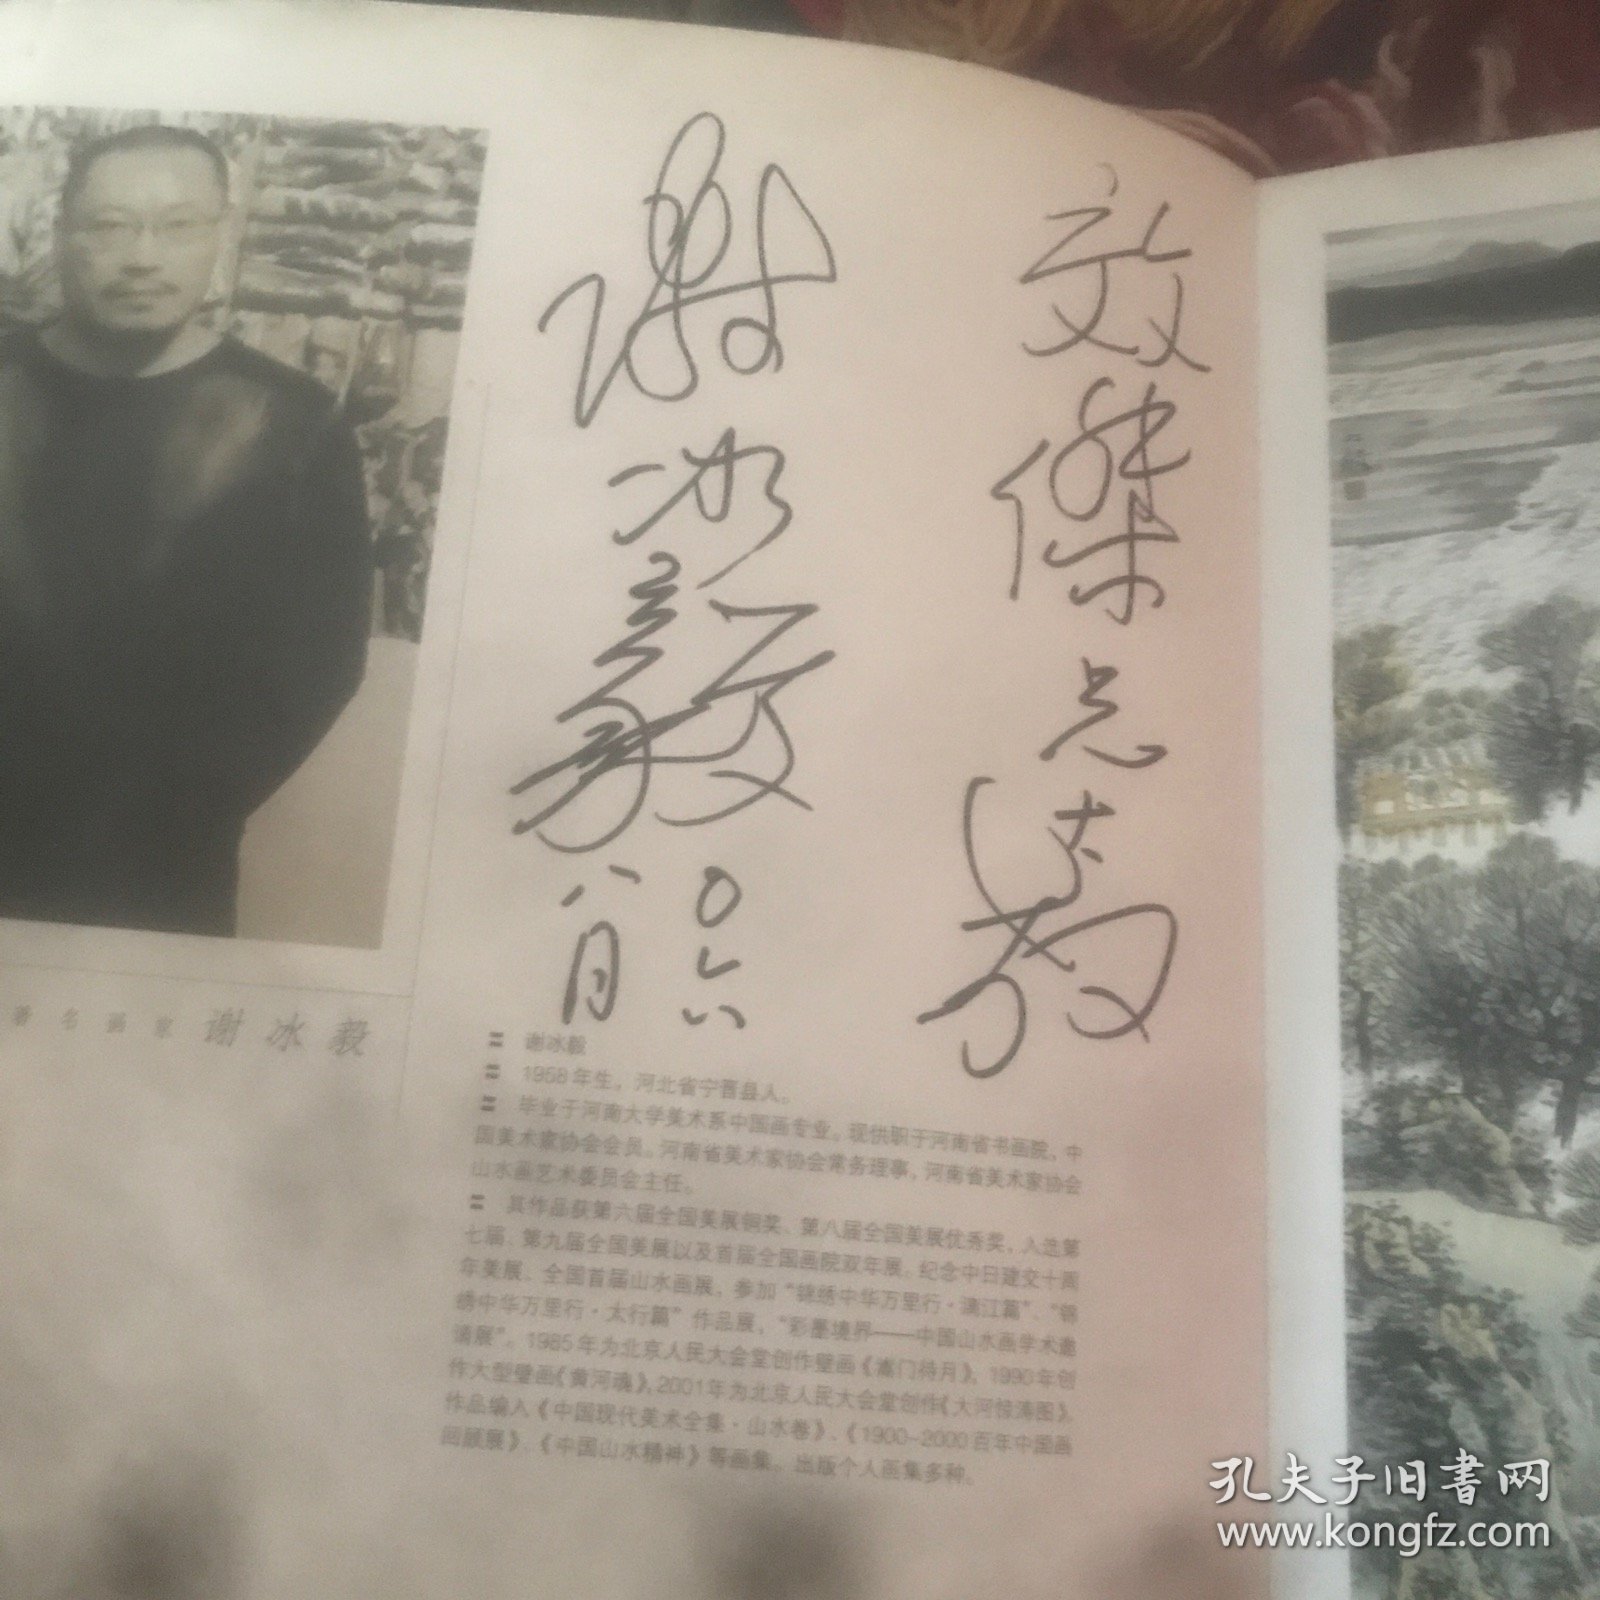 效傑兄
清教
谢冰毅
〇六
八月
著名画家 谢冰毅
谢冰毅
1958年生，河北省宁晋县人。
毕业于河南大学美术系中国画专业。现供职于河南省书画院，中
国美术家协会会员。河南省美术家协会常务理事，河南省美术家协会
山水画艺术委员会主任。
其作品获第六届全国美展铜奖、第八届全国美展优秀奖，入选第
七届、第九届全国美展以及首届全国画院双年展。纪念中日建交十周
年美展、全国首届山水画展，参加“锦绣中华万里行·漓江篇”、“锦
绣中华万里行·太行篇”作品展，“彩墨境界——中国山水画学术邀
请展”。1985年为北京人民大会堂创作壁画《嵩门待月》，1990年创
作大型壁画《黄河魂》，2001年为北京人民大会堂创作《大河惊涛图》。
作品编入《中国现代美术全集·山水卷》、《1900-2000百年中国画
回顾展》、《中国山水精神》等画集。出版个人画集多种。
孔夫子旧書网
www.kongfz.com